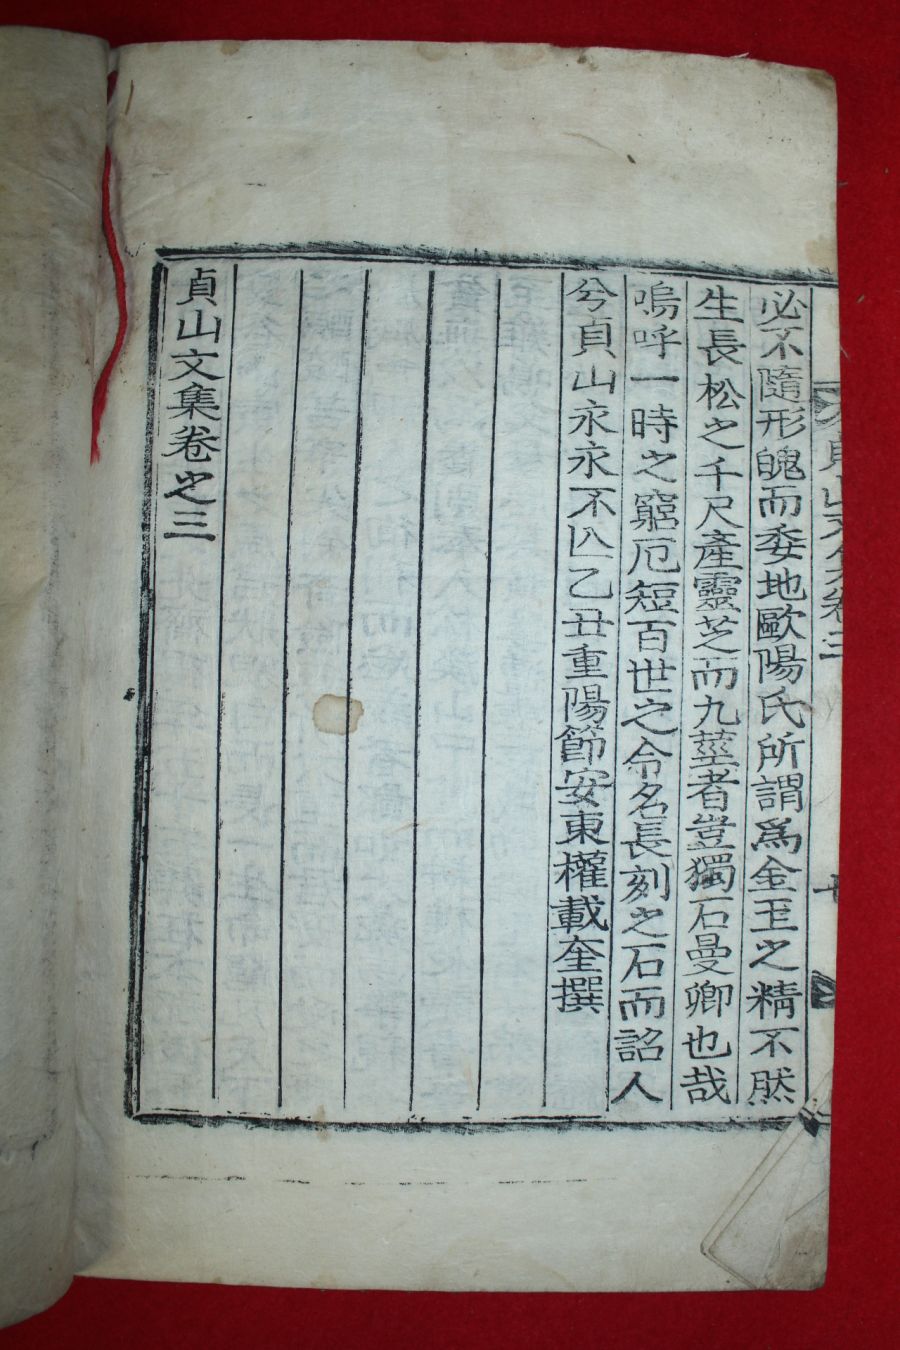 必不隨形魄而委地歐陽氏所謂爲金玉之精不然
生長松之千尺產靈芝而九莖者豈獨石曼卿也哉
嗚呼一時之窮厄短百世之令名長刻之石而詔人
兮貞山永永不亾乙丑重陽節安東權載奎撰
貞山文集卷之三